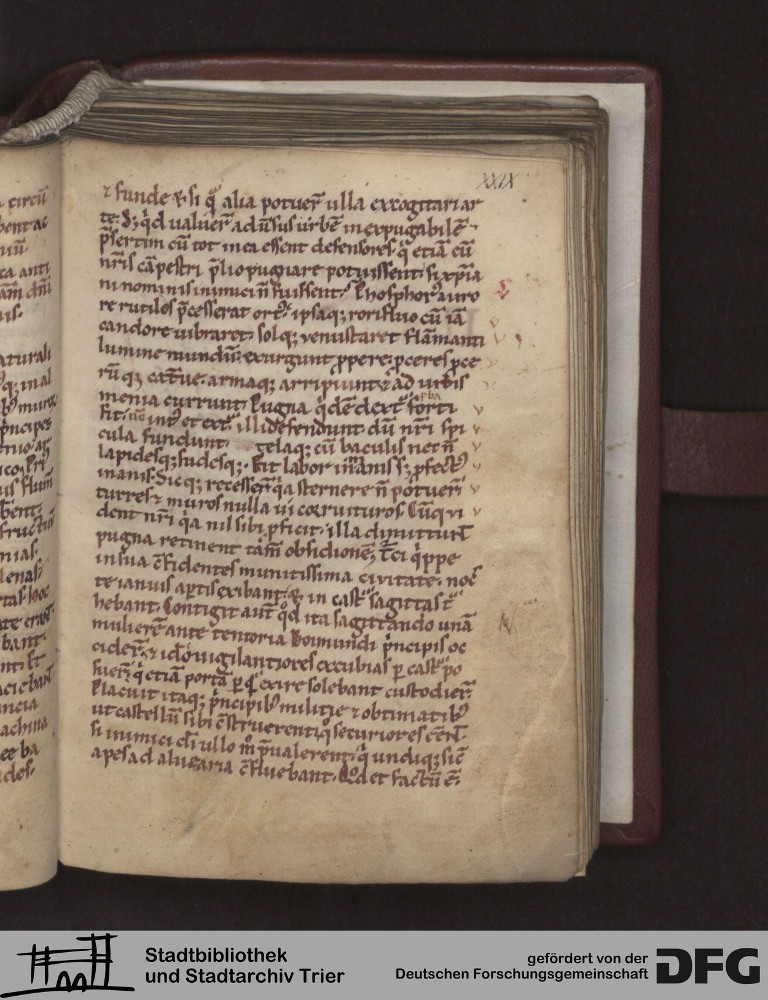 XXIX
& funde & si q̄ alia potuer̄ ulla excogitari ar
te. S; qd ualuer̄ adūsus urbē inexpugabilē
p̄sertim cū tot in ea essent defensores q̇ etiā cū
nr̄is cāpestri p̄lio pugnare potuissent. si xp̄ia
ni nominis inimici n̄ fuissent. Phosphor⁹ auro
re rutilos p̄cesserat ort⁹. ipsaq; rorifluo cū iā
candore uibraret. solq; uenustaret flāmanti
lumine mundū. exurgunt ppere. pceres pce
rūq; armaq; arripiunt & ad urbis
menia currunt. Pugna forti
fit. int⁹ et ext⁹. illi defendunt. dū nr̄i spi
cula fundunt. telaq; cū baculis nec n̄
lapides q; sudesq;. Fit labor īmanis s; pfect⁹
inanis. Sicq; recesser̄ q̇a sternere n̄ potuer̄
turres & muros nulla ui corruituros. Cūq ui
dent nr̄i q̇a nil sibi pficit. illa dimittunt
pugna retinent tām obsidionē. Tci q̇ppe
in sua cfidentes munitissima ciuitate. noc̄
te ianuis aptis exibant. & in cast sagittas t̄
hebant. Contigit aut̄ qd ita sagittando unā
mulierē ante tentoria Boimundi p̄ncipis oc
cider̄. & idō uigilantiores excubias p cast po
suer̄. q̇ etiā portā p q̄ exire solebant custodier̄
Placuit itaq; p̄ncipib⁹ militie & obtimatib⁹
ut castellū sibi cstruerent. q̊ securiores eēnt
si inimici di ullo m̊ p̄ualerent. q̇ undiq; sic̄
apes ad aluearia cfluebant. Qd et factū ē.
circū
bent ac
ca anti
aturali
p̄ncipes
bant.
machina
ee ba
des.
Stadtbibliothek
und Stadtarchiv Trier
gefördert von der
Deutschen Forschungsgemeinschaft
DFG